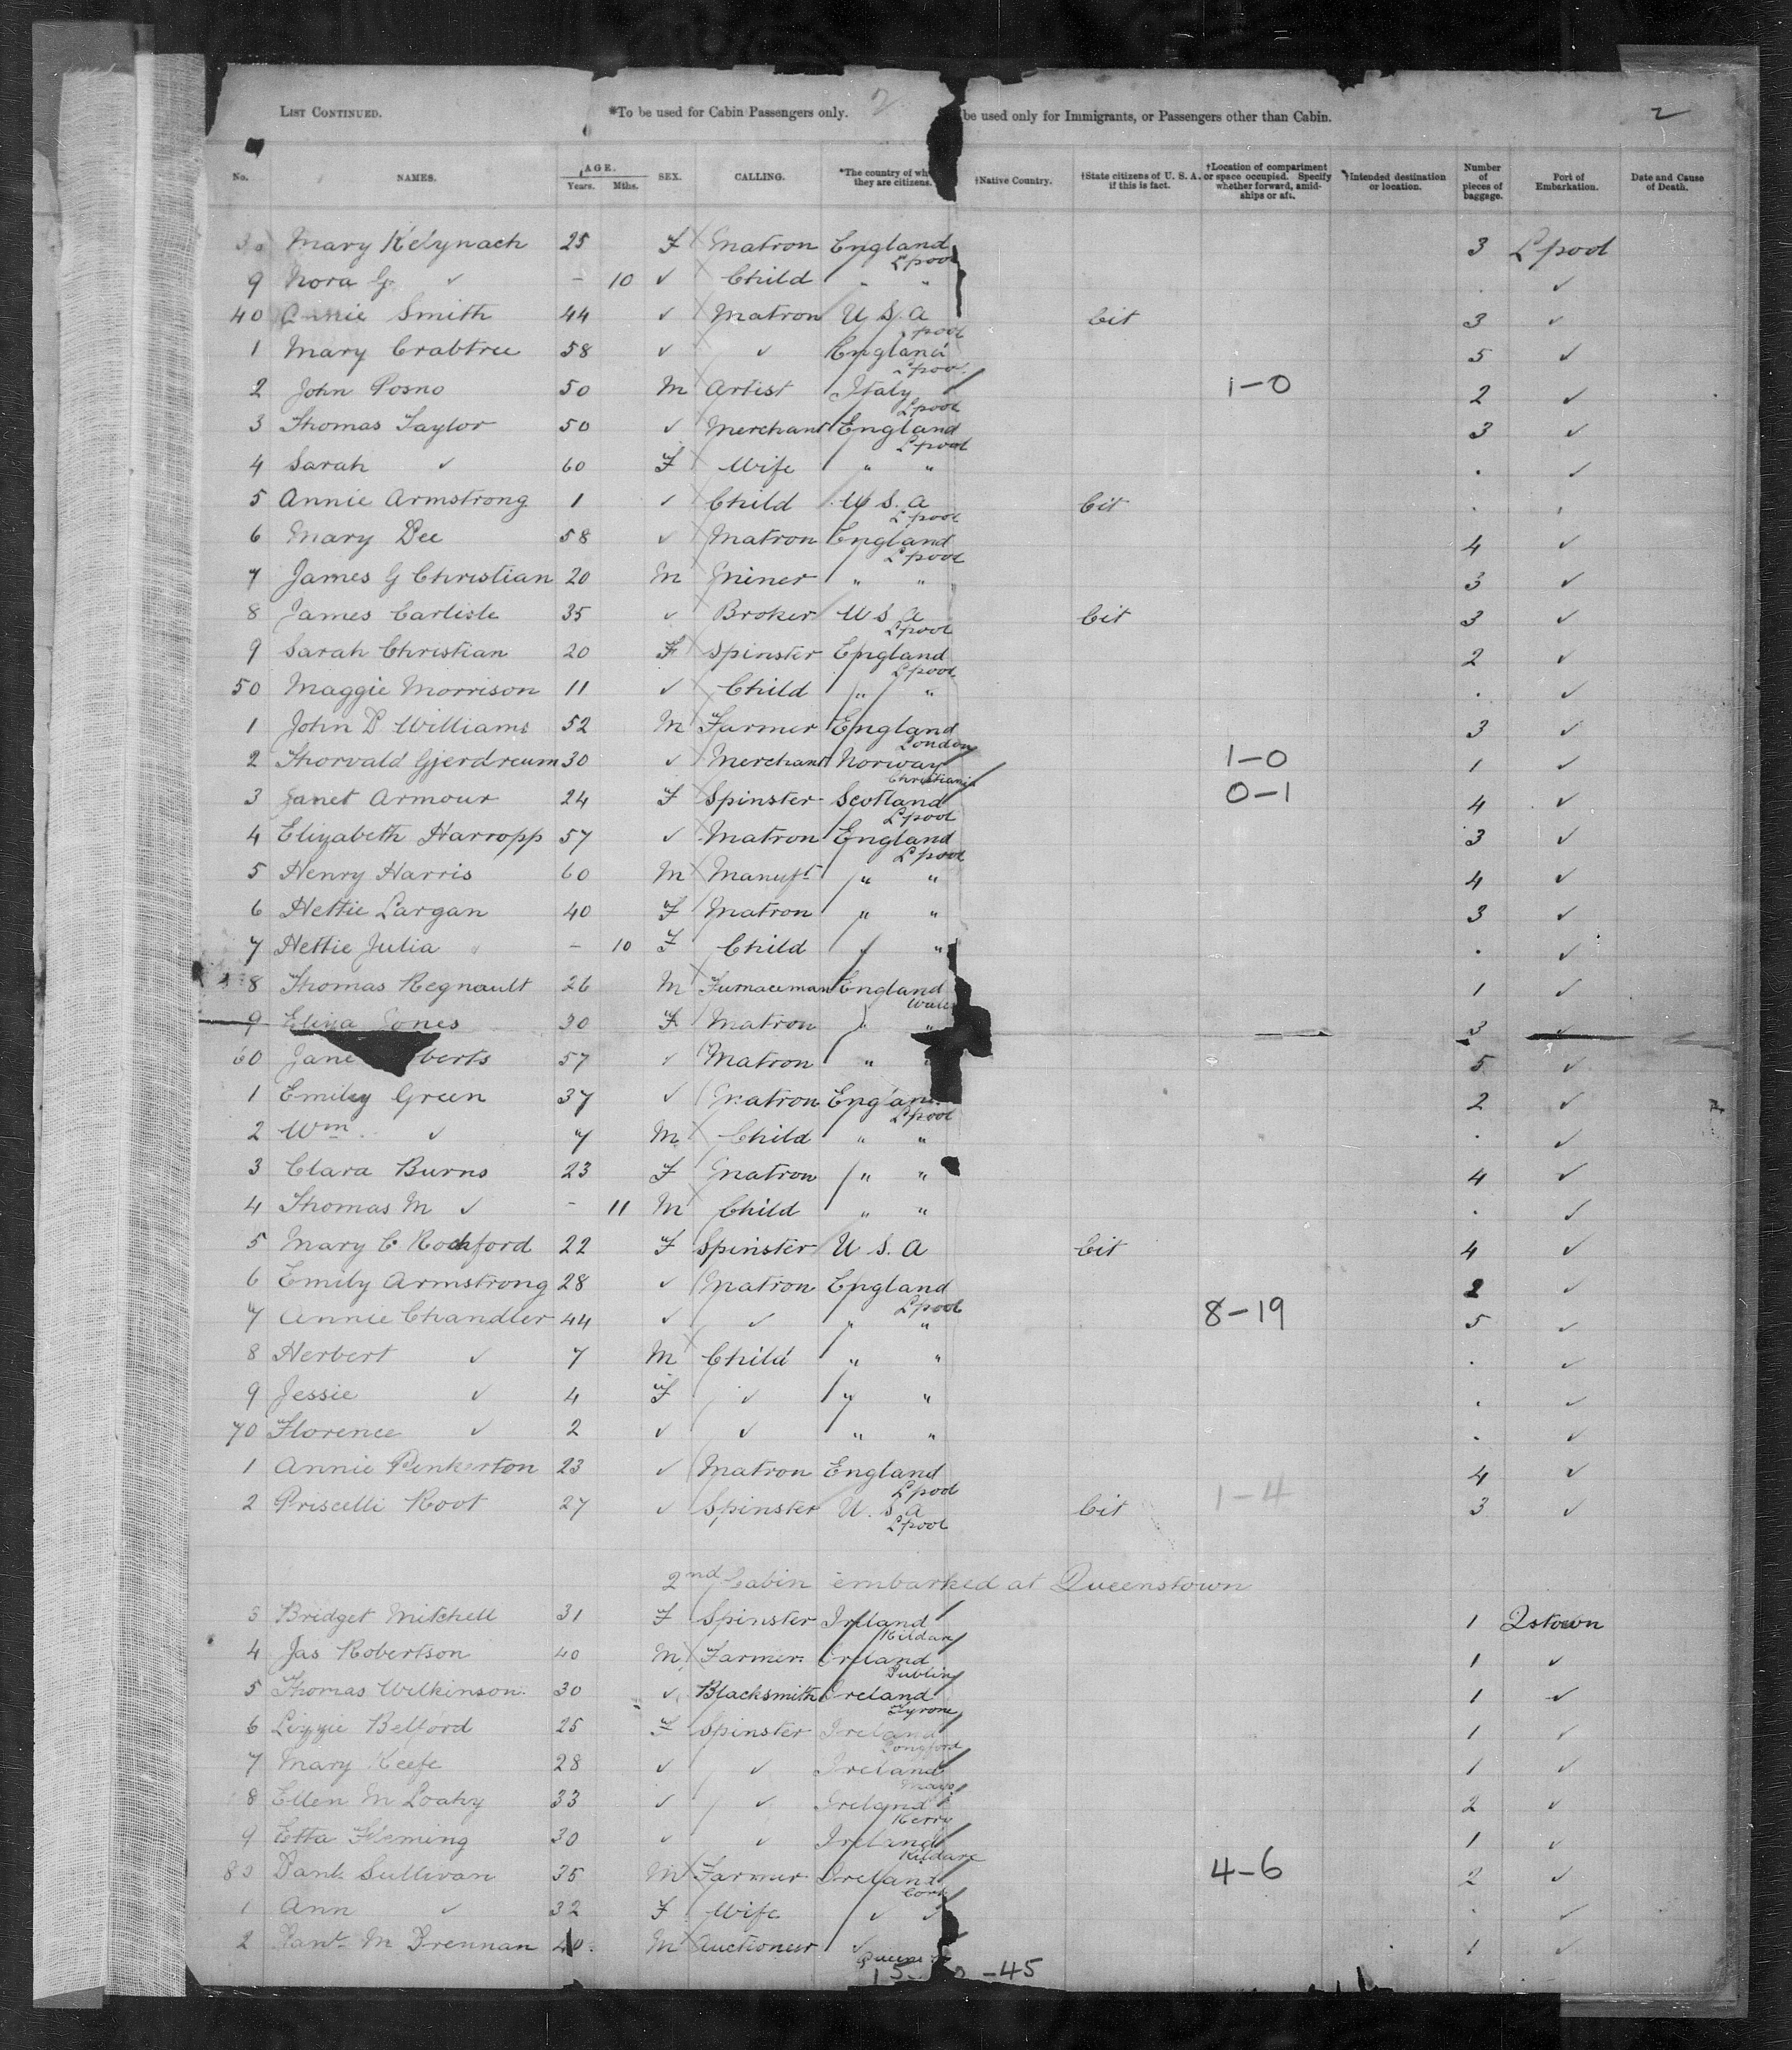 LIST CONTINUED. *To be used for Cabin Passengers only. 2 be used only for Immigrants, or Passengers other than Cabin. 2
No. NAMES. AGE. Years. Mths. SEX. CALLING. *The country of wh they are citizens. †Native Country. †State citizens of U. S. A. if this is fact. †Location of compartment or space occupied. Specify whether forward, amidships or aft. †Intended destination or location. Number of pieces of baggage. Port of Embarkation. Date and Cause of Death.
Mary Kelynach 25 F Matron England L'pool 3 L'pool
9 Nora G ✓ - 10 ✓ Child " " . ✓
40 Annie Smith 44 ✓ Matron U S. A L'pool Cit 3 ✓
1 Mary Crabtree 58 ✓ ✓ England L'pool 5 ✓
2 John Posno 50 M Artist Italy L'pool 1-0 2 ✓
3 Thomas Taylor 50 ✓ Merchant England L'pool 3 ✓
4 Sarah ✓ 60 F Wife " " . ✓
5 Annie Armstrong 1 ✓ Child U S. A L'pool Cit . .
6 Mary Dee 58 ✓ Matron England L'pool 4 ✓
7 James G Christian 20 M Miner " " 3 ✓
8 James Carlisle 35 ✓ Broker U S A L'pool Cit 3 ✓
9 Sarah Christian 20 F Spinster England L'pool 2 ✓
50 Maggie Morrison 11 ✓ Child " " . ✓
1 John D Williams 52 M Farmer England London 3 ✓
2 Thorvald Gjerdreum 30 ✓ Merchant Norway Christiania 1-0 1 ✓
3 Janet Armour 24 F Spinster Scotland L'pool 0-1 4 ✓
4 Elizabeth Harropp 57 ✓ Matron England L'pool 3 ✓
5 Henry Harris 60 M Manuft " " 4 ✓
6 Hettie Largan 40 F Matron " " 3 ✓
7 Hettie Julia " - 10 F Child " " . ✓
8 Thomas Regnault 26 M Furnaceman England Wales 1 ✓
9 Eliza Jones 30 F Matron " " 3 ✓
60 Jane berts 57 ✓ Matron " " 5 ✓
1 Emiley Green 37 ✓ Matron England L'pool 2 ✓
2 Wm ✓ 7 M Child " " . ✓
3 Clara Burns 23 F Matron " " 4 ✓
4 Thomas M ✓ - 11 M Child " " . ✓
5 Mary C Rochford 22 F Spinster U S. A Cit 4 ✓
6 Emily Armstrong 28 ✓ Matron England L'pool 2 ✓
7 Annie Chandler 44 ✓ ✓ " " 8-19 5 ✓
8 Herbert ✓ 7 M Child " " . ✓
9 Jessie ✓ 4 F ✓ " " . ✓
70 Florence ✓ 2 ✓ ✓ " " . ✓
1 Annie Penkerton 23 ✓ Matron England L'pool 4 ✓
2 Priscelli Root 27 ✓ Spinster U. S. A L'pool Cit 1-4 3 ✓
2nd Cabin embarked at Queenstown
3 Bridget Mitchell 31 F Spinster Ireland Kildare 1 Qstown
4 Jas Robertson 40 M Farmer Ireland Dublin 1 ✓
5 Thomas Wilkinson 30 ✓ Blacksmith Ireland Tyrone 1 ✓
6 Lizzie Belford 25 F Spinster Ireland Longford 1 ✓
7 Mary Keefe 28 ✓ ✓ Ireland Mayo 1 ✓
8 Ellen M Loahy 33 ✓ ✓ Ireland Kerry 2 ✓
9 Etta Fleming 30 ✓ ✓ Ireland Kildare 1 ✓
80 Danl. Sullivan 35 M Farmer Ireland Cork 4-6 2 ✓
1 Ann ✓ 32 F Wife ✓ ✓ . ✓
2 M Brennan 40 M Auctioneer ✓ 1 ✓
-45